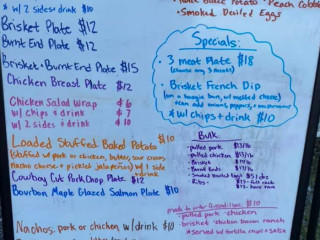 w/ 2 sides + drink $10
Brisket Plate $12
Burnt End Plate $12
Brisket + Burnt End Plate $15
Chicken Breast Plate $12
Chicken Salad Wrap $6
w/ chips + drink $7
w/ 2 sides + drink $10
Loaded Stuffed Baked Potato $10
(stuffed w/ pork or chicken, butter, sour cream
nacho cheese + pickled jalapeños) w/ 1 side
+ drink
Cowboy Cut Pork Chop Plate $12
Bourbon Maple Glazed Salmon Plate $10
Nachos: pork or chicken w/ drink $10
Baked Potato
• Peach Cobbler
• Smoked Deviled Eggs
Specials:
• 3 meat Plate $18
(choose any 3 meats)
• Brisket French Dip
(on a hoagie bun, w/ melted cheese)
• can add onions, peppers, + mushrooms
w/ chips + drink $10
Bulk
• pulled pork
• pulled chicken
• Brisket
• Burnt Ends
• Smoked
• Ribs -
made to order Quesadillas $10
• pulled pork • chicken
• brisket • chicken bacon ranch
* served w/ tortilla chips + salsa